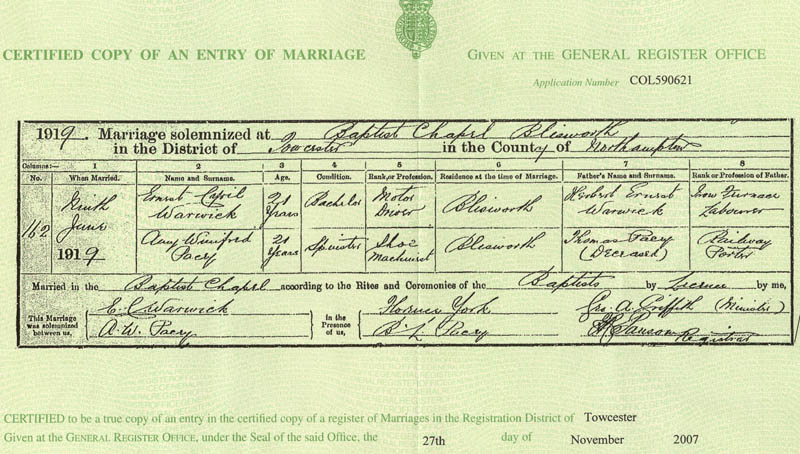 CERTIFIED COPY OF AN ENTRY OF MARRIAGE
GIVEN AT THE GENERAL REGISTER OFFICE
Application Number COL590621
1919. Marriage solemnized at Baptist Chapel Blisworth
in the District of Towcester in the County of Northampton
Columns:— 1 2 3 4 5 6 7 8
No. When Married. Name and Surname. Age. Condition. Rank or Profession. Residence at the time of Marriage. Father's Name and Surname. Rank or Profession of Father.
162 Ninth June 1919
Ernest Warwick 21 Years Bachelor Motor Driver Blisworth Herbert Ernest Warwick Iron Furnace Labourer
Amy Winifred Pacey 21 Years Spinster Shoe Machinist Blisworth Thomas Pacey (Deceased) Railway Porter
Married in the Baptist Chapel according to the Rites and Ceremonies of the Baptists by Licence by me,
This Marriage was solemnized between us,
E. C. Warwick
A. W. Pacey
in the Presence of us,
Florence York
B. L. Pacey
Geo. A. Griffith (Minister)
Registrar
CERTIFIED to be a true copy of an entry in the certified copy of a register of Marriages in the Registration District of Towcester
Given at the GENERAL REGISTER OFFICE, under the Seal of the said Office, the 27th day of November 2007